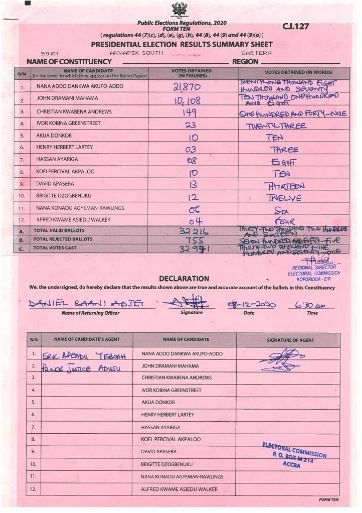 Public Elections Regulations, 2020
FORM TEN
C.I.127
(regulations 44 (7)(c), (d), (e), (g), (h), 44 (8), 44 (8) and 44 (9)(a))
PRESIDENTIAL ELECTION RESULTS SUMMARY SHEET
AKUAPEM SOUTH EASTERN
NAME OF CONSTITUENCY REGION
S/N NAME OF CANDIDATE VOTES OBTAINED (IN FIGURES) VOTES OBTAINED (IN WORDS)
(in the order in which they appear on the Ballot Paper)
1. NANA ADDO DANKWA AKUFO-ADDO 21870 TWENTY-ONE THOUSAND EIGHT HUNDRED AND SEVENTY
2. JOHN DRAMANI MAHAMA 10,108 TEN THOUSAND ONE HUNDRED AND EIGHT
3. CHRISTIAN KWABENA ANDREWS 149 ONE HUNDRED AND FORTY-NINE
4. IVOR KOBINA GREENSTREET 23 TWENTY-THREE
5. AKUA DONKOR 10 TEN
6. HENRY HERBERT LARTEY 03 THREE
7. HASSAN AYARIGA 08 EIGHT
8. KOFI PERCIVAL AKPALOO 10 TEN
9. DAVID APASERA 13 THIRTEEN
10. BRIGITTE DZOGBENUKU 12 TWELVE
11. NANA KONADU AGYEMAN-RAWLINGS 06 SIX
12. ALFRED KWAME ASIEDU WALKER 04 FOUR
A. TOTAL VALID BALLOTS 32216 THIRTY-TWO THOUSAND TWO HUNDRED AND SIXTEEN
B. TOTAL REJECTED BALLOTS 755 SEVEN HUNDRED AND FIFTY-FIVE
C. TOTAL VOTES CAST 32971
REGIONAL DIRECTOR
ELECTORAL COMMISSION
KOFORIDUA - E/R
DECLARATION
We, the undersigned, do hereby declare that the results shown above are true and accurate account of the ballots in this Constituency
DANIEL BAANI ADJEI 08-12-2020 6:30 am
Name of Returning Officer Signature Date Time
S/N NAME OF CANDIDATE'S AGENT NAME OF CANDIDATE SIGNATURE OF AGENT
1. ERIC APEADU YEBOAH NANA ADDO DANKWA AKUFO-ADDO
2. JOHN DRAMANI MAHAMA
3. CHRISTIAN KWABENA ANDREWS
4. IVOR KOBINA GREENSTREET
5. AKUA DONKOR
6. HENRY HERBERT LARTEY
7. HASSAN AYARIGA
8. KOFI PERCIVAL AKPALOO
9. DAVID APASERA
10. BRIGITTE DZOGBENUKU
11. NANA KONADU AGYEMAN-RAWLINGS
12. ALFRED KWAME ASIEDU WALKER
ELECTORAL COMMISSION
P. O. BOX M 214
ACCRA
FORM TEN